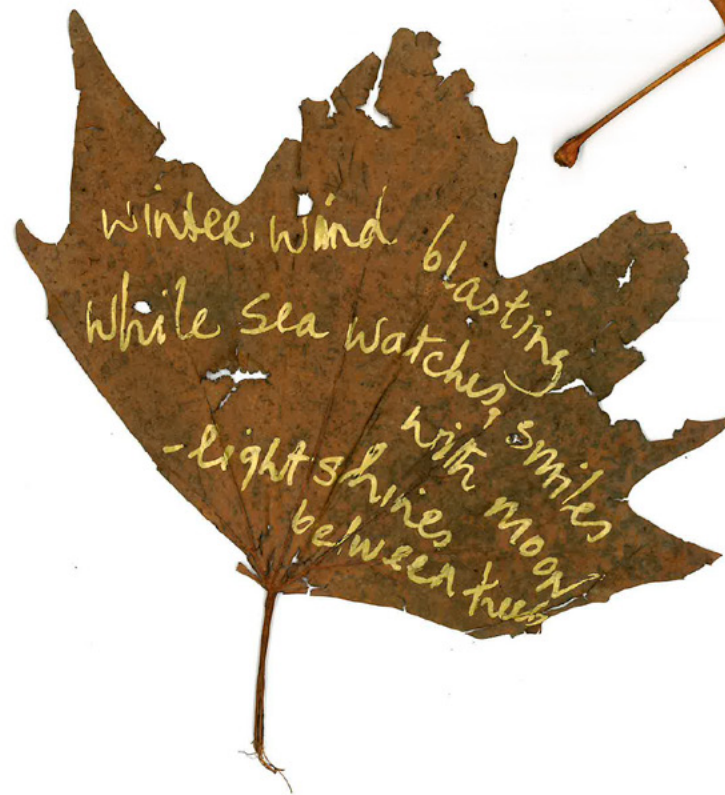 winter wind blasting
while sea watches, smiles
with moon
-light shines
between trees